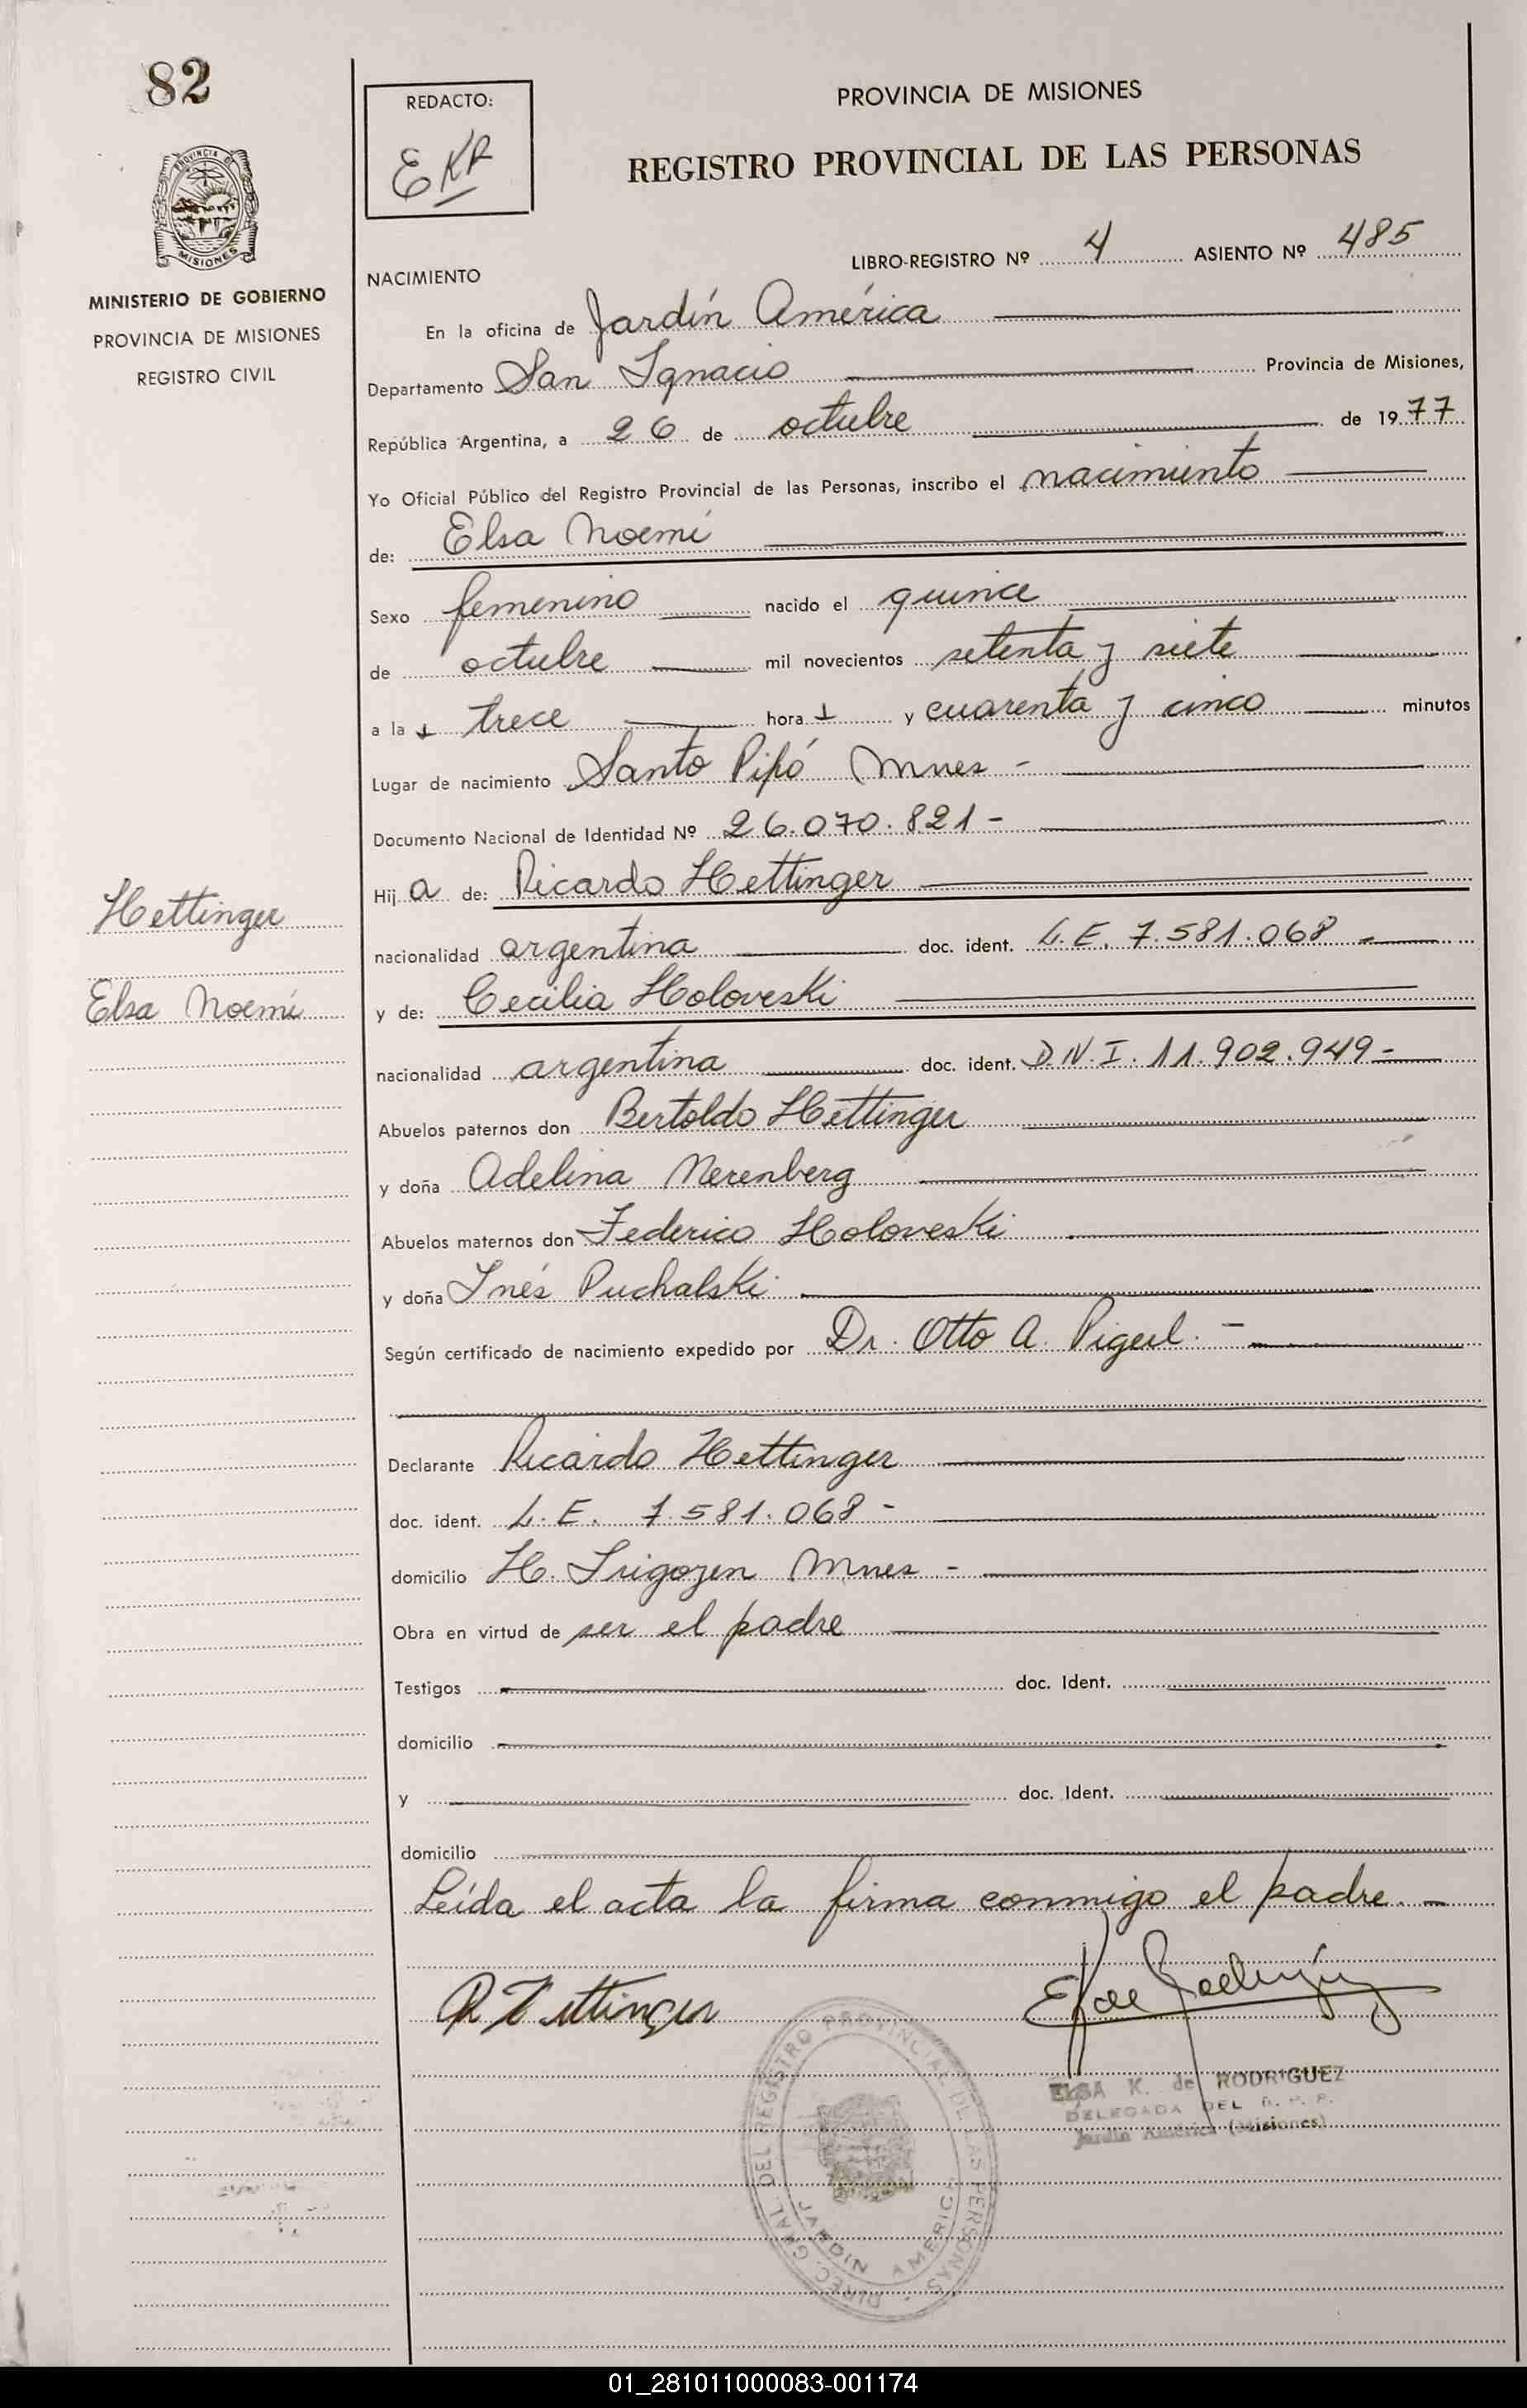 82
PROVINCIA DE
MISIONES
MINISTERIO DE GOBIERNO
PROVINCIA DE MISIONES
REGISTRO CIVIL
REDACTO:
EKR
PROVINCIA DE MISIONES
REGISTRO PROVINCIAL DE LAS PERSONAS
LIBRO-REGISTRO Nº 4 ASIENTO Nº 485
NACIMIENTO
En la oficina de Jardín América
Departamento San Ignacio Provincia de Misiones,
República Argentina, a 26 de octubre de 1977
Yo Oficial Público del Registro Provincial de las Personas, inscribo el nacimiento
de: Elsa Noemí
Sexo femenino nacido el quince
de octubre mil novecientos setenta y siete
a la s trece hora s y cuarenta y cinco minutos
Lugar de nacimiento Santo Pipó Mnes -
Documento Nacional de Identidad Nº 26.070.821-
Hij a de: Ricardo Hettinger
Hettinger
nacionalidad argentina doc. ident. L.E. 7.581.068 -
Elsa Noemí
y de: Cecilia Holoveski
nacionalidad argentina doc. ident. D.N.I. 11.902.949-
Abuelos paternos don Bertoldo Hettinger
y doña Adelina Nerenberg
Abuelos maternos don Federico Holoveski
y doña Inés Puchalski
Según certificado de nacimiento expedido por Dr. Otto A. Pigerl. -
Declarante Ricardo Hettinger
doc. ident. L.E. 7.581.068 -
domicilio H. Irigoyen Mnes -
Obra en virtud de ser el padre
Testigos doc. Ident.
domicilio
y doc. Ident.
domicilio
Leída el acta la firma conmigo el padre. -
R. Hettinger
E K de Rodríguez
ELSA K. de RODRIGUEZ
DELEGADA DEL R. P. P.
Jardín América (Misiones)
DIREC. GRAL. DEL REGISTRO PROVINCIAL DE LAS PERSONAS
JARDIN AMERICA
01_281011000083-001174